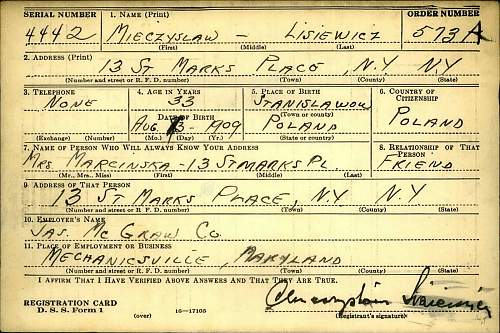 SERIAL NUMBER 1. NAME (Print) ORDER NUMBER
4442 MIECZYSLAW - LISIEWICZ 573A
(First) (Middle) (Last)
2. ADDRESS (Print)
13 ST MARKS PLACE, N.Y NY
(Number and street or R. F. D. number) (Town) (County) (State)
3. TELEPHONE 4. AGE IN YEARS 5. PLACE OF BIRTH 6. COUNTRY OF CITIZENSHIP
NONE 33 STANISLAWOW POLAND
DATE OF BIRTH (Town or county)
AUG. 13-1909 POLAND
(Exchange) (Number) (Mo.) (Day) (Yr.) (State or country)
7. NAME OF PERSON WHO WILL ALWAYS KNOW YOUR ADDRESS 8. RELATIONSHIP OF THAT PERSON
MRS. MARCINSKA - 13 ST MARKS PL FRIEND
(Mr., Mrs., Miss) (First) (Middle) (Last)
9. ADDRESS OF THAT PERSON
13 ST MARKS PLACE, N.Y N.Y
(Number and street or R. F. D. number) (Town) (County) (State)
10. EMPLOYER'S NAME
JAS. MC GRAW CO.
11. PLACE OF EMPLOYMENT OR BUSINESS
MECHANICSVILLE, MARYLAND
(Number and street or R. F. D. number) (Town) (County) (State)
I AFFIRM THAT I HAVE VERIFIED ABOVE ANSWERS AND THAT THEY ARE TRUE.
REGISTRATION CARD
D. S. S. Form 1 (over) 16-17105 (Registrant's signature)